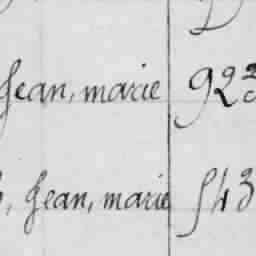 Jean, marie 922
Jean, marie 543